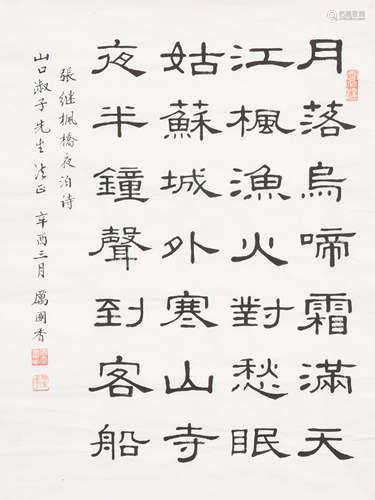 月落烏啼霜滿天
江楓漁火對愁眠
姑蘇城外寒山寺
夜半鐘聲到客船
張继楓橋夜泊诗
山口淑子先生法正 辛酉三月 厲國香